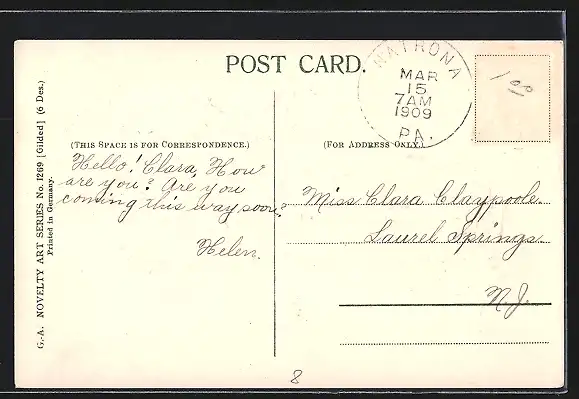 POST CARD.
NATRONA
MAR
15
7AM
1909
PA.
1 00
(THIS SPACE IS FOR CORRESPONDENCE.)
(FOR ADDRESS ONLY.)
Hello! Clara, How
are you? Are you
coming this way soon?
Helen.
Miss Clara Claypoole.
Laurel Springs.
N.J.
G.-A. NOVELTY ART SERIES No. 1269 [Gilded] (6 Des.)
Printed in Germany.
8